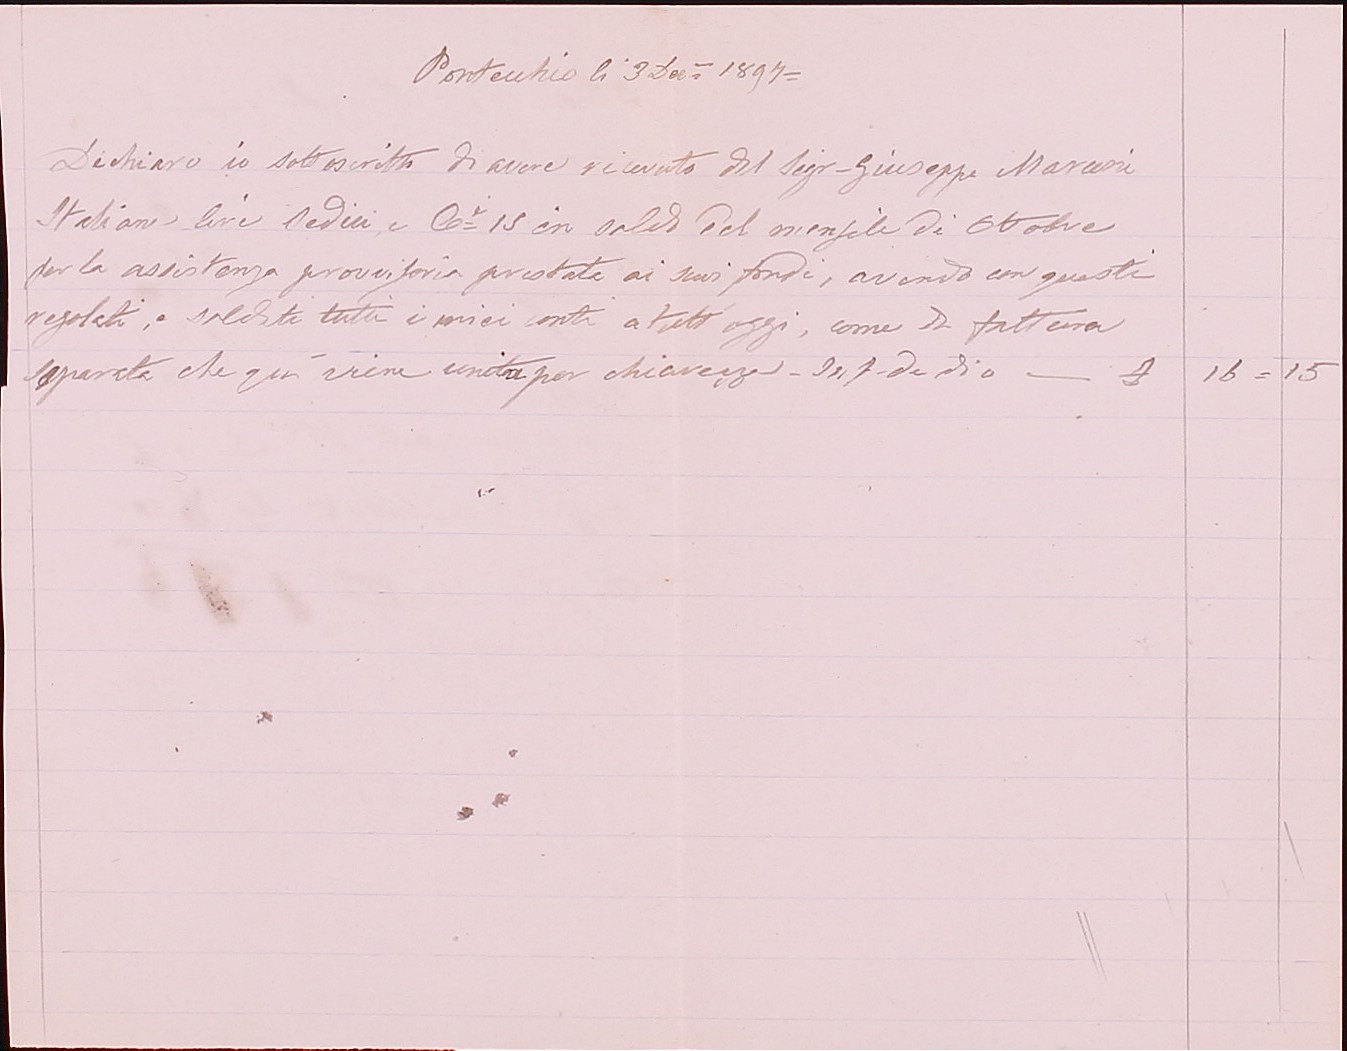 Pontecchio li 3 Dec.= 1897=
Dichiaro io sottoscritto di avere ricevuto dal Sigr- Giuseppe Marconi
Italiane lire sedici, e C.i= 15 in saldo del mensile di Ottobre
per la assistenza provvisoria prestata ai suoi fondi, avendo con questi
regolati, e saldati tutti i miei conti a tutt oggi, come da fattura
separata che qui viene unita per chiarezza - In f- de dio — £ 16 = 15